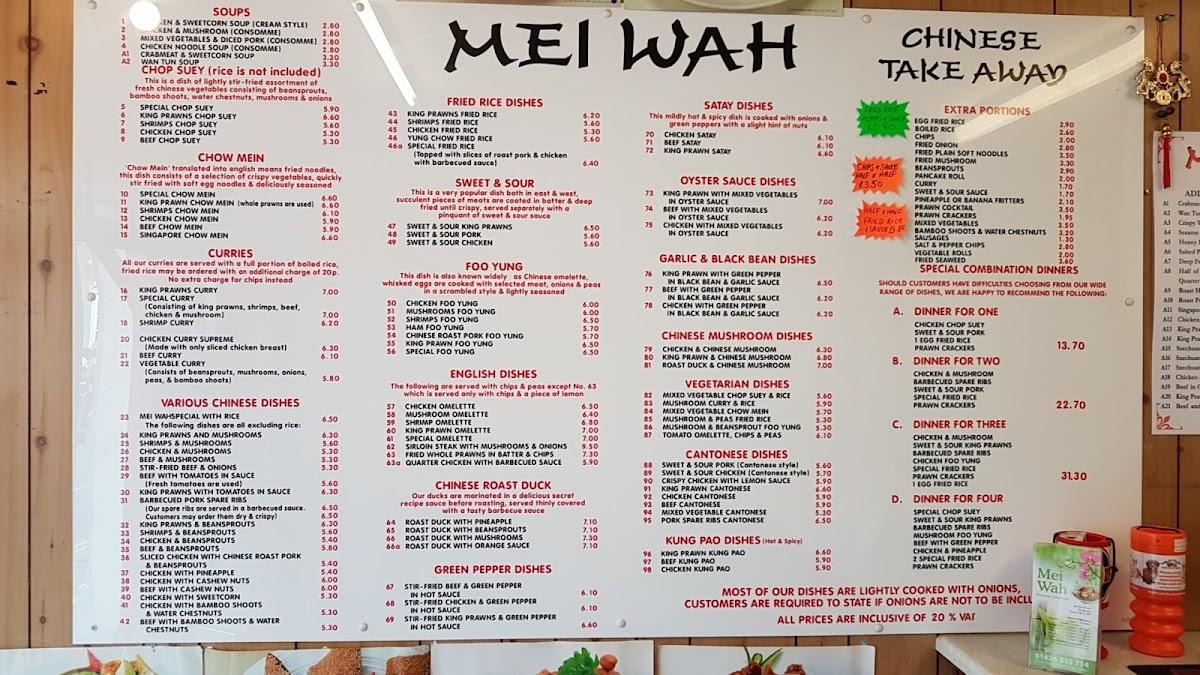 MEI WAH
CHINESE
TAKE AWAY
SOUPS
1 CHICKEN & SWEETCORN SOUP (CREAM STYLE) 2.80
2 CHICKEN & MUSHROOM (CONSOMME) 2.80
3 MIXED VEGETABLES & DICED PORK (CONSOMME) 2.80
4 CHICKEN NOODLE SOUP (CONSOMME) 2.80
A1 CRABMEAT & SWEETCORN SOUP 3.30
A2 WAN TUN SOUP 3.30
CHOP SUEY (rice is not included)
This is a dish of lightly stir-fried assortment of
fresh chinese vegetables consisting of beansprouts,
bamboo shoots, water chestnuts, mushrooms & onions
5 SPECIAL CHOP SUEY 5.90
6 KING PRAWNS CHOP SUEY 6.60
7 SHRIMPS CHOP SUEY 5.60
8 CHICKEN CHOP SUEY 5.30
9 BEEF CHOP SUEY 5.30
CHOW MEIN
'Chow Mein' translated into english means fried noodles,
this dish consists of a selection of crispy vegetables, quickly
stir fried with soft egg noodles & deliciously seasoned
10 SPECIAL CHOW MEIN 6.60
11 KING PRAWN CHOW MEIN (whole prawns are used) 6.60
12 SHRIMPS CHOW MEIN 6.10
13 CHICKEN CHOW MEIN 5.90
14 BEEF CHOW MEIN 5.90
15 SINGAPORE CHOW MEIN 6.60
CURRIES
All our curries are served with a full portion of boiled rice,
fried rice may be ordered with an additional charge of 20p.
No extra charge for chips instead
16 KING PRAWNS CURRY 7.00
17 SPECIAL CURRY
(Consisting of king prawns, shrimps, beef,
chicken & mushroom) 7.00
18 SHRIMP CURRY 6.20
20 CHICKEN CURRY SUPREME
(Made with only sliced chicken breast) 6.30
21 BEEF CURRY 6.10
22 VEGETABLE CURRY
(Consists of beansprouts, mushrooms, onions,
peas, & bamboo shoots) 5.80
VARIOUS CHINESE DISHES
23 MEI WAHSPECIAL WITH RICE 6.50
The following dishes are all excluding rice:
24 KING PRAWNS AND MUSHROOMS 6.30
25 SHRIMPS & MUSHROOMS 5.60
26 CHICKEN & MUSHROOMS 5.30
27 BEEF & MUSHROOMS 5.30
28 STIR-FRIED BEEF & ONIONS 5.30
29 BEEF WITH TOMATOES IN SAUCE
(Fresh tomatoes are used) 5.60
30 KING PRAWNS WITH TOMATOES IN SAUCE 6.30
31 BARBECUED PORK SPARE RIBS
(Our spare ribs are served in a barbecued sauce. 6.50
Customers may order them dry & crispy) 6.50
32 KING PRAWNS & BEANSPROUTS 6.30
33 SHRIMPS & BEANSPROUTS 5.60
34 CHICKEN & BEANSPROUTS 5.40
35 BEEF & BEANSPROUTS 5.80
36 SLICED CHICKEN WITH CHINESE ROAST PORK
& BEANSPROUTS 5.40
37 CHICKEN WITH PINEAPPLE 5.40
38 CHICKEN WITH CASHEW NUTS 6.00
39 BEEF WITH CASHEW NUTS 6.00
40 CHICKEN WITH SWEETCORN 5.30
41 CHICKEN WITH BAMBOO SHOOTS
& WATER CHESTNUTS 5.30
42 BEEF WITH BAMBOO SHOOTS & WATER
CHESTNUTS 5.30
FRIED RICE DISHES
43 KING PRAWNS FRIED RICE 6.20
44 SHRIMPS FRIED RICE 5.60
45 CHICKEN FRIED RICE 5.30
46 YUNG CHOW FRIED RICE 5.60
46a SPECIAL FRIED RICE
(Topped with slices of roast pork & chicken
with barbecued sauce) 6.40
SWEET & SOUR
This is a very popular dish both in east & west,
succulent pieces of meats are coated in batter & deep
fried until crispy, served separately with a
pinquant of sweet & sour sauce
47 SWEET & SOUR KING PRAWNS 6.50
48 SWEET & SOUR PORK 5.60
49 SWEET & SOUR CHICKEN 5.60
FOO YUNG
This dish is also known widely as Chinese omelette,
whisked eggs are cooked with selected meat, onions & peas
in a scrambled style & lightly seasoned
50 CHICKEN FOO YUNG 6.00
51 MUSHROOMS FOO YUNG 6.00
52 SHRIMPS FOO YUNG 6.50
53 HAM FOO YUNG 5.70
54 CHINESE ROAST PORK FOO YUNG 5.70
55 KING PRAWN FOO YUNG 6.50
56 SPECIAL FOO YUNG 6.50
ENGLISH DISHES
The following are served with chips & peas except No. 63
which is served only with chips & a piece of lemon
57 CHICKEN OMELETTE 6.50
58 MUSHROOM OMELETTE 6.40
59 SHRIMP OMELETTE 6.80
60 KING PRAWN OMELETTE 7.00
61 SPECIAL OMELETTE 7.00
62 SIRLOIN STEAK WITH MUSHROOMS & ONIONS 9.50
63 FRIED WHOLE PRAWNS IN BATTER & CHIPS 7.30
63a QUARTER CHICKEN WITH BARBECUED SAUCE 5.90
CHINESE ROAST DUCK
Our ducks are marinated in a delicious secret
recipe sauce before roasting, served thinly covered
with a tasty barbecue sauce
64 ROAST DUCK WITH PINEAPPLE 7.10
65 ROAST DUCK WITH BEANSPROUTS 7.10
66 ROAST DUCK WITH MUSHROOMS 7.30
66a ROAST DUCK WITH ORANGE SAUCE 7.10
GREEN PEPPER DISHES
67 STIR-FRIED BEEF & GREEN PEPPER
IN HOT SAUCE 6.10
68 STIR-FRIED CHICKEN & GREEN PEPPER
IN HOT SAUCE 6.10
69 STIR-FRIED KING PRAWNS & GREEN PEPPER
IN HOT SAUCE 6.60
SATAY DISHES
This mildly hot & spicy dish is cooked with onions &
green peppers with a slight hint of nuts
70 CHICKEN SATAY 6.10
71 BEEF SATAY 6.10
72 KING PRAWN SATAY 6.60
OYSTER SAUCE DISHES
73 KING PRAWN WITH MIXED VEGETABLES
IN OYSTER SAUCE 7.00
74 BEEF WITH MIXED VEGETABLES
IN OYSTER SAUCE 6.20
75 CHICKEN WITH MIXED VEGETABLES
IN OYSTER SAUCE 6.20
GARLIC & BLACK BEAN DISHES
76 KING PRAWN WITH GREEN PEPPER
IN BLACK BEAN & GARLIC SAUCE 6.50
77 BEEF WITH GREEN PEPPER
IN BLACK BEAN & GARLIC SAUCE 6.20
78 CHICKEN WITH GREEN PEPPER
IN BLACK BEAN & GARLIC SAUCE 6.20
CHINESE MUSHROOM DISHES
79 CHICKEN & CHINESE MUSHROOM 6.30
80 KING PRAWN & CHINESE MUSHROOM 6.80
81 ROAST DUCK & CHINESE MUSHROOM 7.00
VEGETARIAN DISHES
82 MIXED VEGETABLE CHOP SUEY & RICE 5.60
83 MUSHROOM CURRY & RICE 5.90
84 MIXED VEGETABLE CHOW MEIN 5.70
85 MUSHROOM & PEAS FRIED RICE 5.30
86 MUSHROOM & BEANSPROUT FOO YUNG 5.30
87 TOMATO OMELETTE, CHIPS & PEAS 6.10
CANTONESE DISHES
88 SWEET & SOUR PORK (Cantonese style) 5.60
89 SWEET & SOUR CHICKEN (Cantonese style) 5.70
90 CRISPY CHICKEN WITH LEMON SAUCE 5.90
91 KING PRAWN CANTONESE 6.60
92 CHICKEN CANTONESE 5.90
93 BEEF CANTONESE 5.90
94 MIXED VEGETABLE CANTONESE 5.30
95 PORK SPARE RIBS CANTONESE 6.50
KUNG PAO DISHES (Hot & Spicy)
96 KING PRAWN KUNG PAO 6.60
97 BEEF KUNG PAO 5.90
98 CHICKEN KUNG PAO 5.90
CHIPS + SAUCE
HALF & HALF
£3.50
HALF & HALF
FRIED RICE
+ SAUCE £3.80
EXTRA PORTIONS
EGG FRIED RICE 2.90
BOILED RICE 2.60
CHIPS 2.00
FRIED ONION 2.80
FRIED PLAIN SOFT NOODLES 3.50
FRIED MUSHROOM 3.30
BEANSPROUTS 2.90
PANCAKE ROLL 2.00
CURRY 1.70
SWEET & SOUR SAUCE 1.70
PINEAPPLE OR BANANA FRITTERS 2.10
PRAWN COCKTAIL 3.50
PRAWN CRACKERS 1.95
MIXED VEGETABLES 3.50
BAMBOO SHOOTS & WATER CHESTNUTS 3.20
SAUSAGES 1.30
SALT & PEPPER CHIPS 2.80
VEGETABLE ROLLS 2.00
FRIED SEAWEED 3.60
SPECIAL COMBINATION DINNERS
SHOULD CUSTOMERS HAVE DIFFICULTIES CHOOSING FROM OUR WIDE
RANGE OF DISHES, WE ARE HAPPY TO RECOMMEND THE FOLLOWING:
A. DINNER FOR ONE
CHICKEN CHOP SUEY
SWEET & SOUR PORK
1 EGG FRIED RICE
PRAWN CRACKERS 13.70
B. DINNER FOR TWO
CHICKEN & MUSHROOM
BARBECUED SPARE RIBS
SWEET & SOUR PORK
SPECIAL FRIED RICE
PRAWN CRACKERS 22.70
C. DINNER FOR THREE
CHICKEN & MUSHROOM
SWEET & SOUR KING PRAWNS
BARBECUED SPARE RIBS
CHICKEN FOO YUNG
SPECIAL FRIED RICE
PRAWN CRACKERS 31.30
1 EGG FRIED RICE
D. DINNER FOR FOUR
SPECIAL CHOP SUEY
SWEET & SOUR KING PRAWNS
BARBECUED SPARE RIBS
MUSHROOM FOO YUNG
BEEF WITH GREEN PEPPER
CHICKEN & PINEAPPLE
2 SPECIAL FRIED RICE
PRAWN CRACKERS
MOST OF OUR DISHES ARE LIGHTLY COOKED WITH ONIONS,
CUSTOMERS ARE REQUIRED TO STATE IF ONIONS ARE NOT TO BE INCLU
ALL PRICES ARE INCLUSIVE OF 20 % VAT
Mei
Wah
01626 833 714